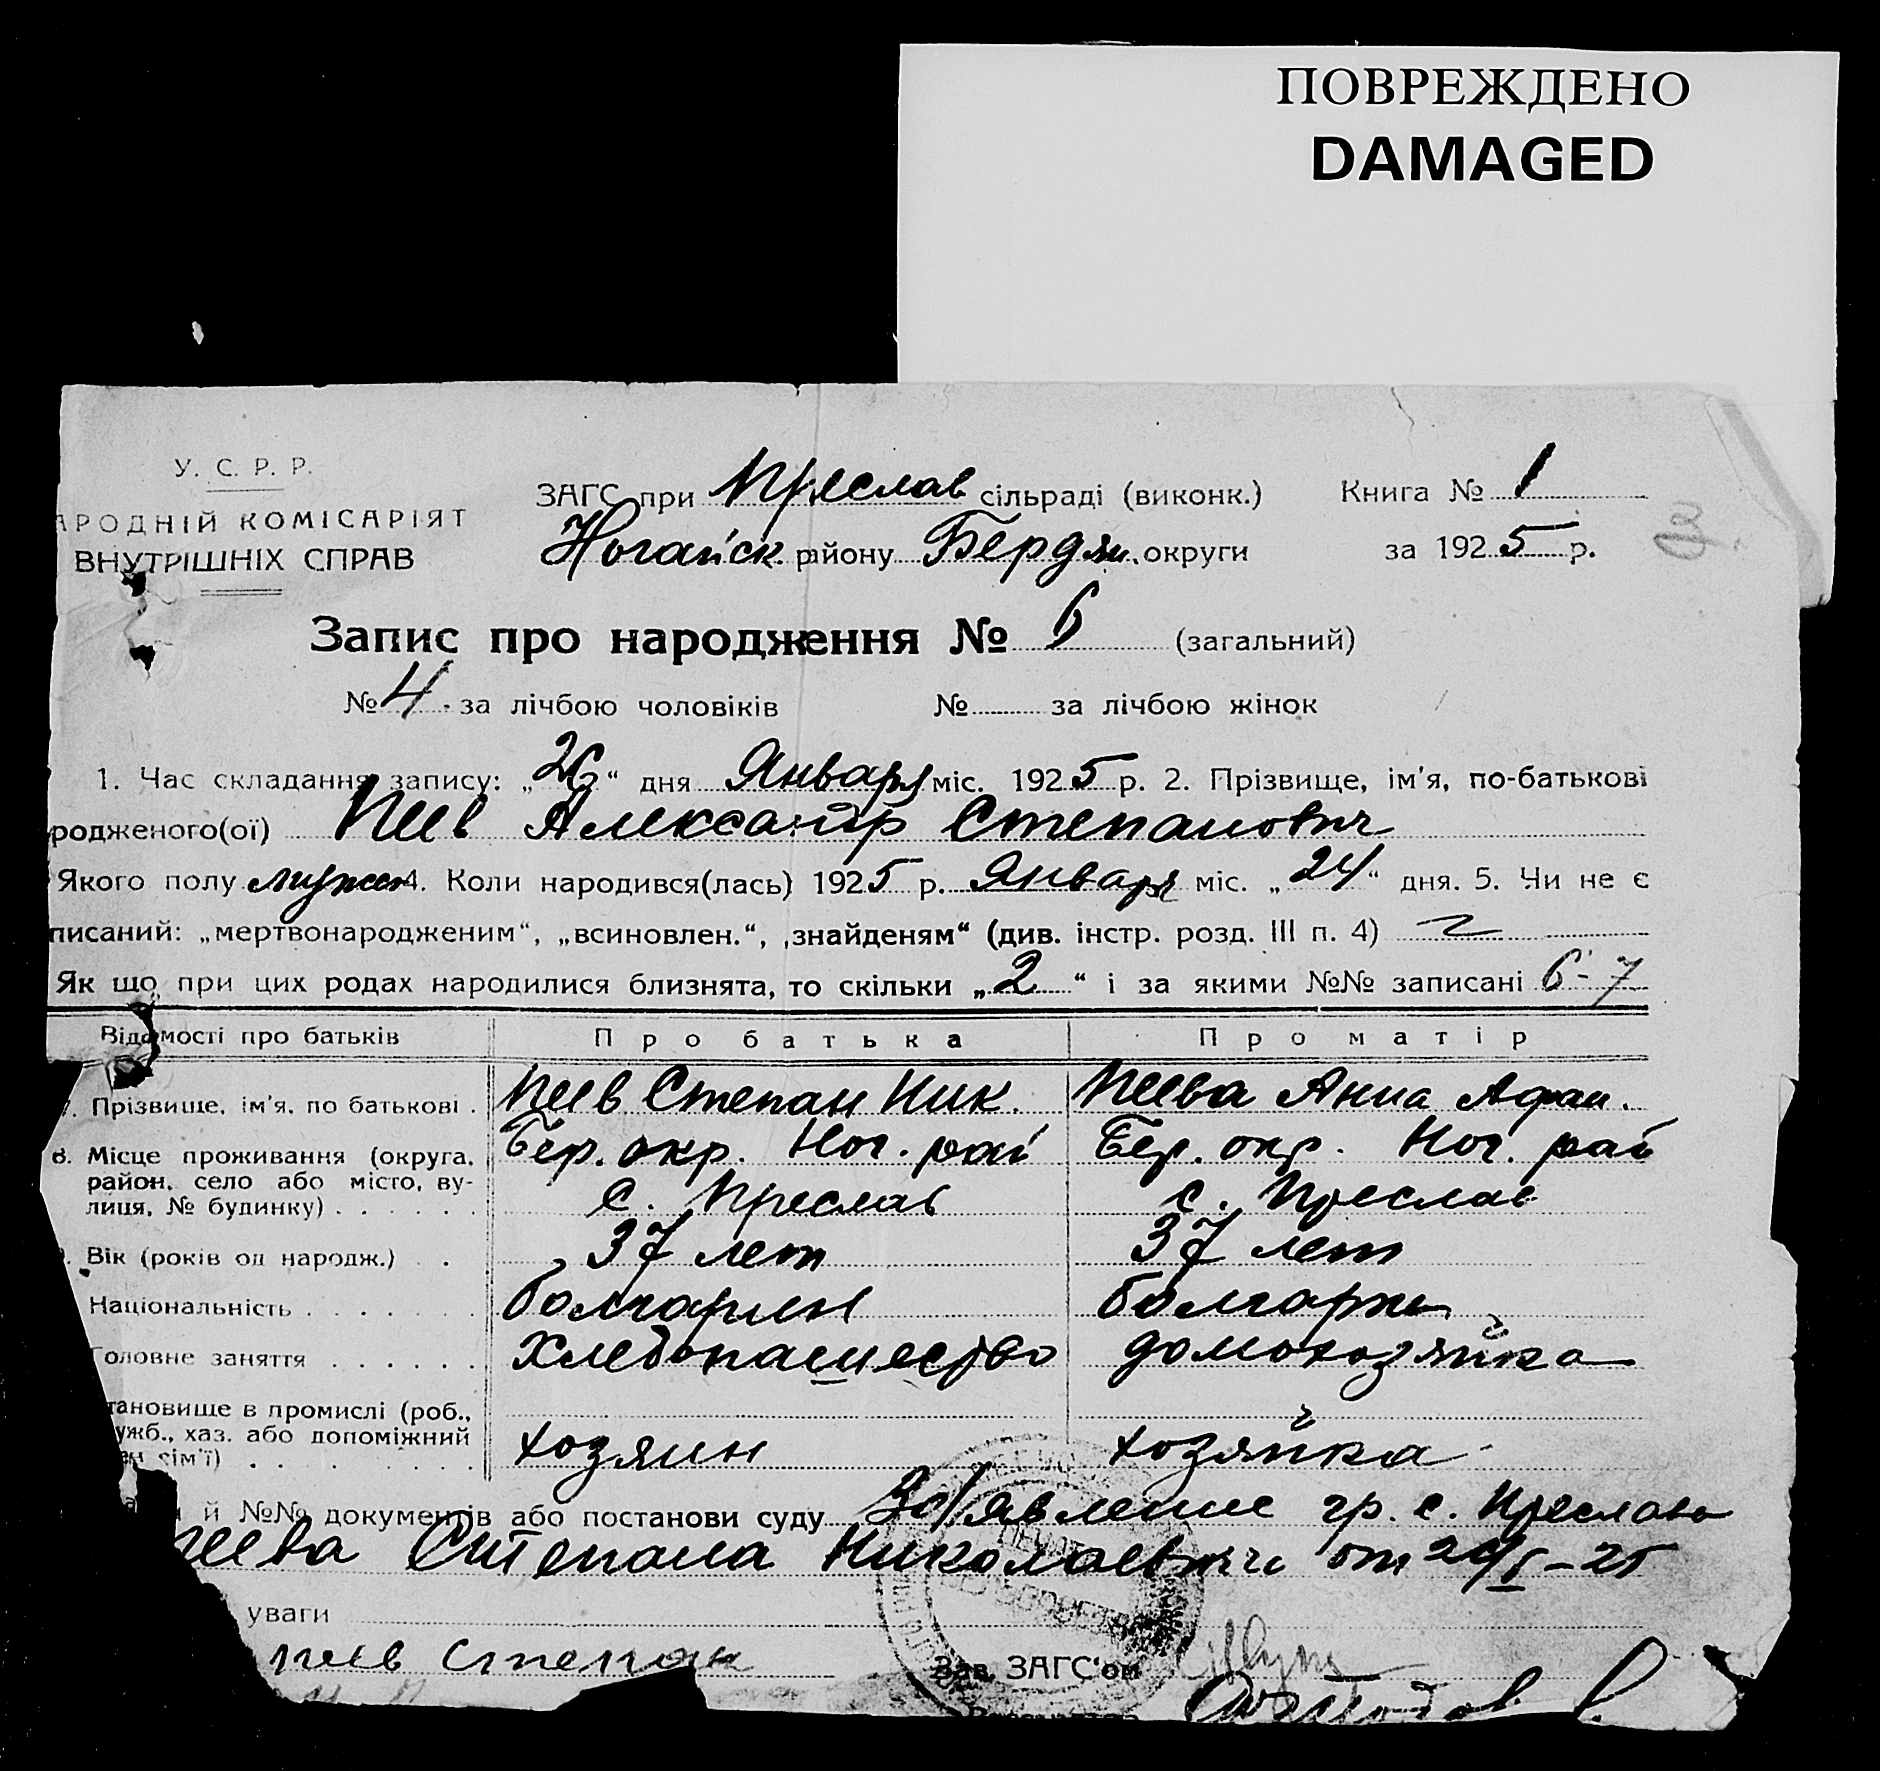 ПОВРЕЖДЕНО
DAMAGED
У. С. Р. Р.
АРОДНІЙ КОМІСАРІЯТ
ВНУТРІШНІХ СПРАВ
ЗАГС при Преслав сільраді (виконк.) Книга № 1
Ногайск. району Бердян. округи за 1925 р.
Запис про народження № 6 (загальний)
№ 4 за лічбою чоловіків № за лічбою жінок
1. Час складання запису: „26“ дня Января міс. 1925 р. 2. Прізвище, ім'я, по-батькові
родженого(ої) Пеев Александр Степанович
Якого полу мужск 4. Коли народився(лась) 1925 р. Января міс. „24“ дня. 5. Чи не є
писаний: „мертвонародженим“, „всиновлен.“, „знайденям“ (див. інстр. розд. III п. 4)
Як що при цих родах народилися близнята, то скільки „2“ і за якими №№ записані 6-7
Відомості про батьків Про батька Про матір
7. Прізвище, ім'я, по батькові . Пеев Степан Ник. Пеева Анна Афан.
8. Місце проживання (округа, Бер. окр. Ног. рай Бер. окр. Ног. рай
район, село або місто, ву-
лиця, № будинку) . . . . . . с. Преслав с. Преслав
Вік (років од народж.) . . 37 лет 37 лет
Національність . . . . . . . болгарин болгарка
Головне заняття . . . . . . хлебопашество домохозяйка
тановище в промислі (роб.,
ужб., хаз. або допоміжний
ен сім'ї) . . . . . . . . хозяин хозяйка
й №№ документів або постанови суду Заявление гр. с. Преслава
Пеева Степана Николаевича от 24/I-25
уваги
Пеев Степан
Зав. ЗАГС'ом